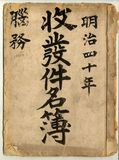 明治四十年
收發件名簿
腦務